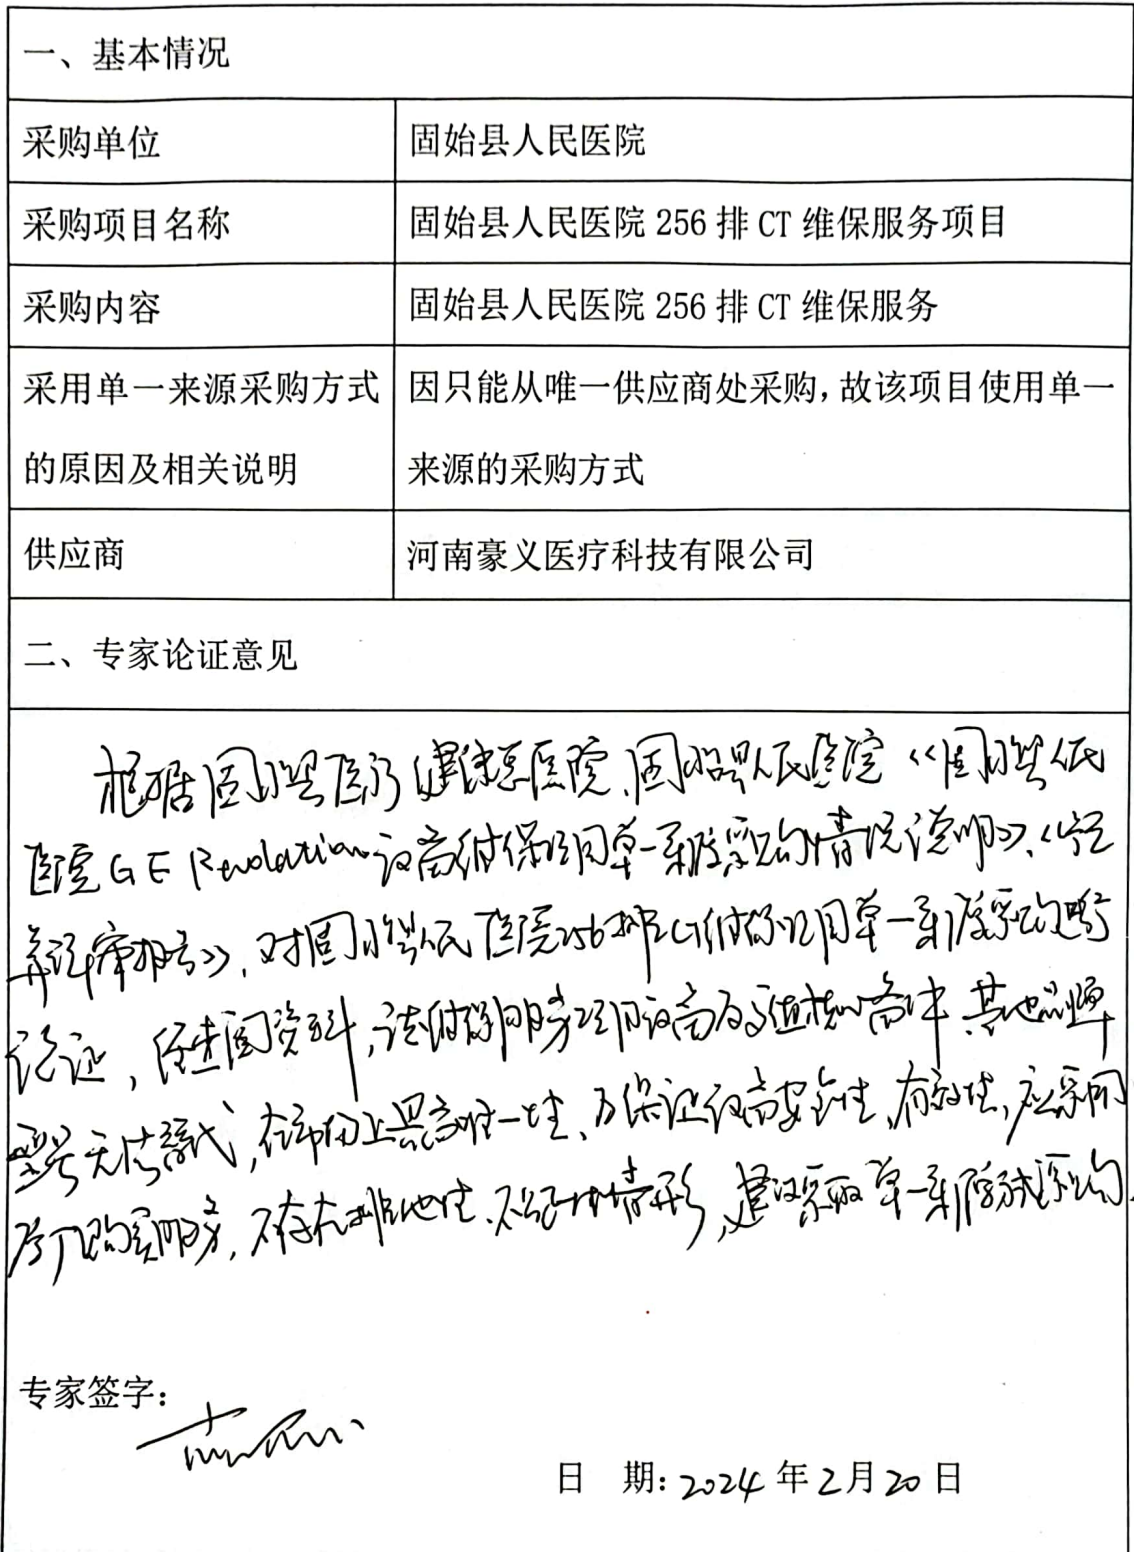 一、基本情况
采购单位
固始县人民医院
采购项目名称
固始县人民医院 256 排 CT 维保服务项目
采购内容
固始县人民医院 256 排 CT 维保服务
采用单一来源采购方式
的原因及相关说明
因只能从唯一供应商处采购,故该项目使用单一
来源的采购方式
供应商
河南豪义医疗科技有限公司
二、专家论证意见
根据固始县医疗健康总医院、固始县人民医院《固始县人民
医院 GE Revolution 设备维保项目单一来源采购情况说明》、《
评审报告》,对固始县人民医院256排CT维保项目单一来源采购进行
论证,经查阅资料,该维保服务项目设备及其核心备件 其他品牌
型号无法替代,在市场上具有唯一性、为保证设备安全性、有效性,应采用
原厂购买服务,不存在排他性、不公平情形,建议采取单一来源方式采购.
专家签字:
日 期: 2024 年 2 月 20 日